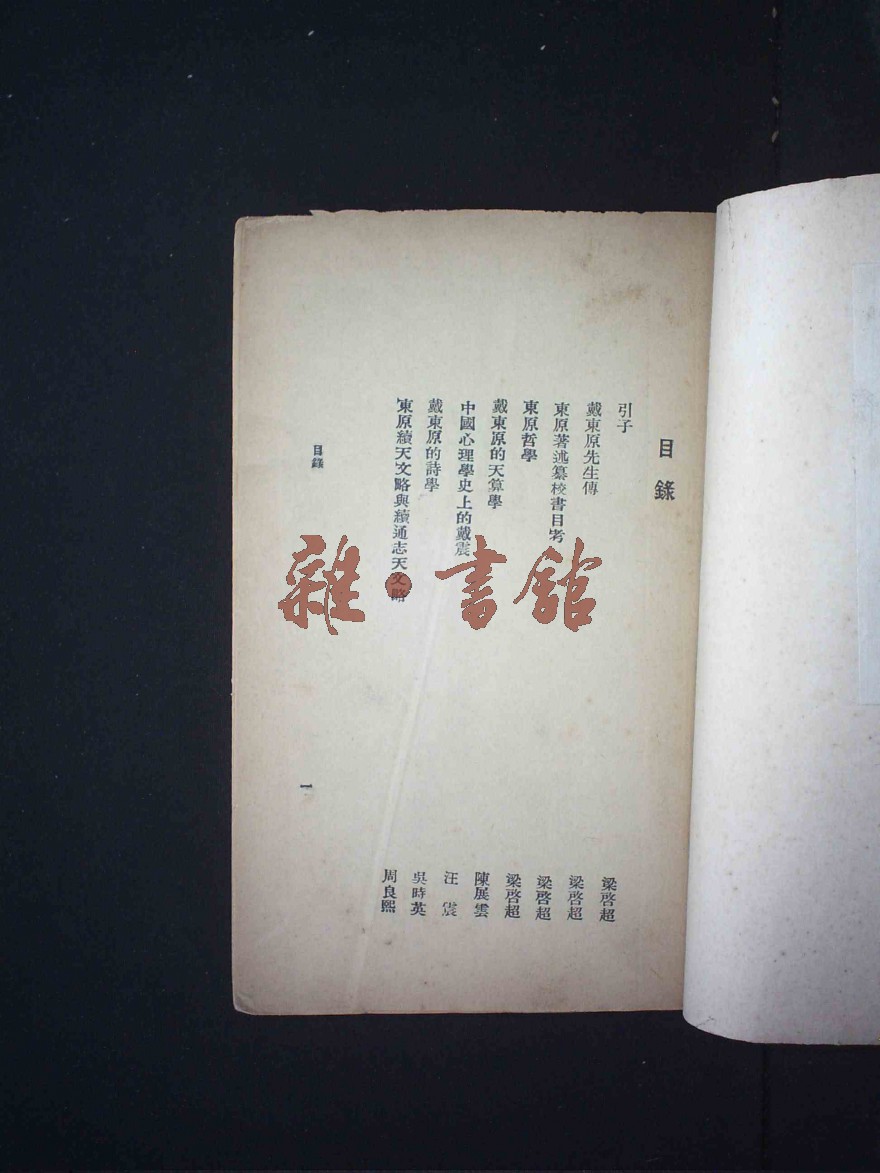 目錄
引子 梁啓超
戴東原先生傳 梁啓超
東原著述纂校書目考 梁啓超
東原哲學 梁啓超
戴東原的天算學 陳展雲
中國心理學史上的戴震 汪震
戴東原的詩學 吳時英
東原續天文略與續通志天文略 周良熙
目錄
一
雜·書館